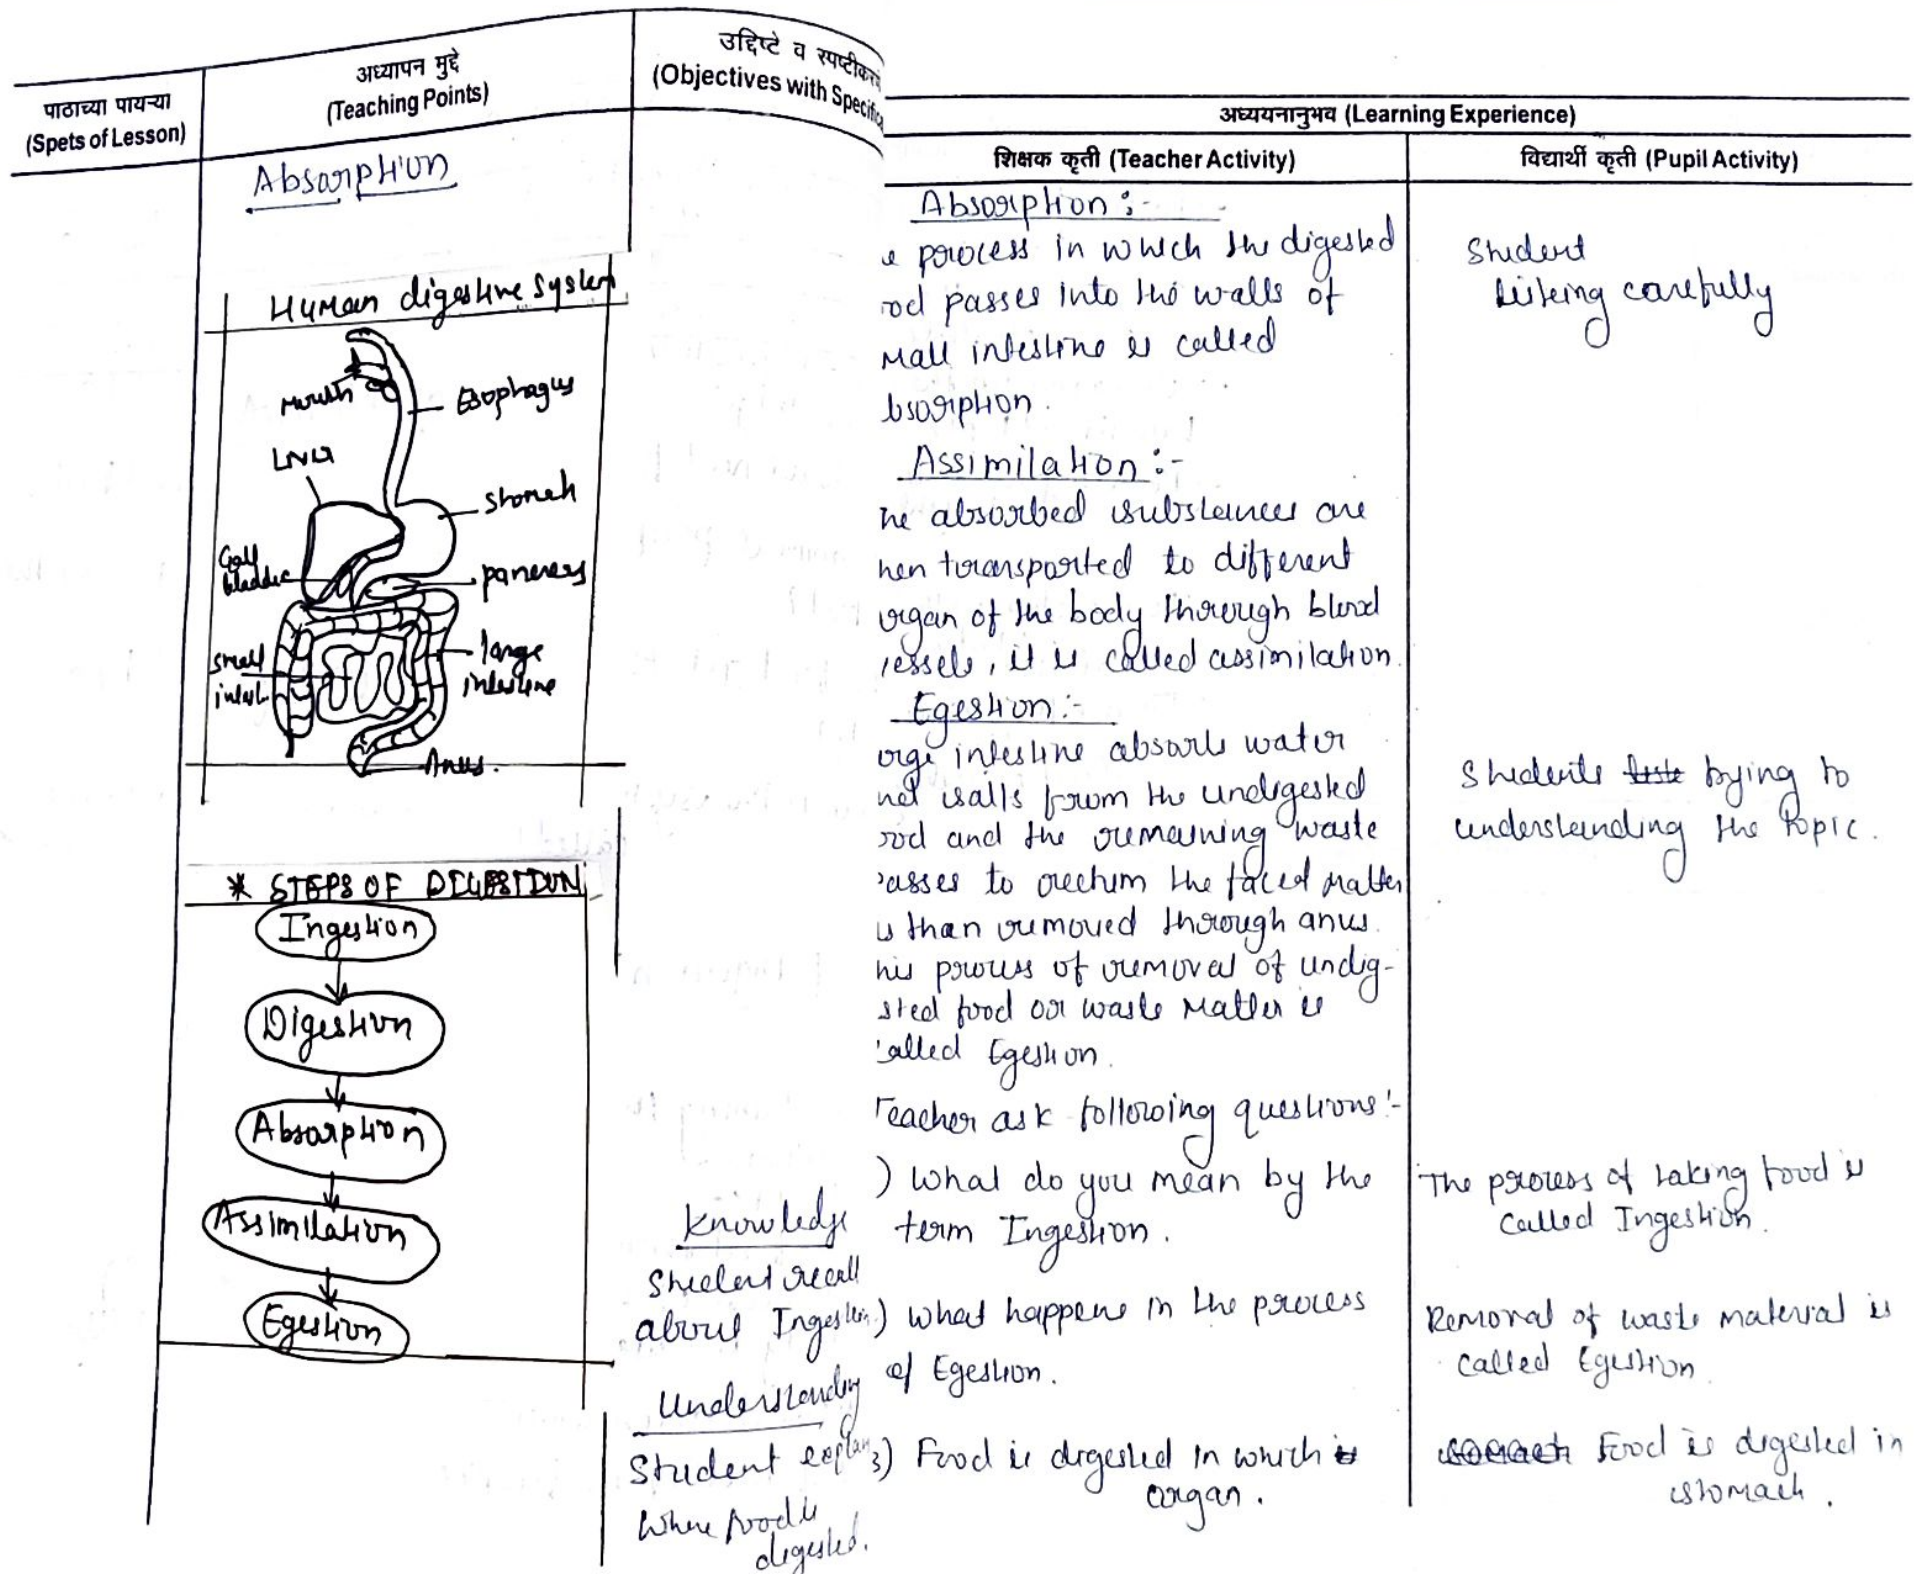 पाठाच्या पायऱ्या
(Spets of Lesson)
अध्यापन मुद्दे
(Teaching Points)
उद्दिष्टे व स्पष्टीकरणे
(Objectives with Specifica
Absorption
Human digestive System
Mouth
Esophagus
Liver
stomch
Gall
bladder
pancreas
small
intest.
large
intestine
Anus.
* STEPS OF DIGESTION
Ingestion
Digestion
Absorption
Assimilation
Egestion
Knowledge
Student recall
about Ingestion
Understanding
Student explain
Where food is
digested.
अध्ययनानुभव (Learning Experience)
शिक्षक कृती (Teacher Activity)
विद्यार्थी कृती (Pupil Activity)
Absorption :-
e process in which the digested
ood passes into the walls of
mall intestine is called
bsorption.
Assimilation :-
he absorbed substances are
hen transported to different
organ of the body through blood
vessels, it is called assimilation.
Egestion :-
arge intestine absorb water
nd salts from the undigested
ood and the remaining waste
passes to rectum the faced matter
is than removed through anus.
his process of removal of undig-
sted food or waste matter is
called Egestion.
Teacher ask following questions :-
) What do you mean by the
term Ingestion.
) What happens in the process
of Egestion.
3) Food is digested in which is
organ.
Student
listing carefully
Students liste trying to
understanding the topic.
The process of taking food is
called Ingestion.
Removal of waste material is
called Egestion
Food is digested in
stomach.